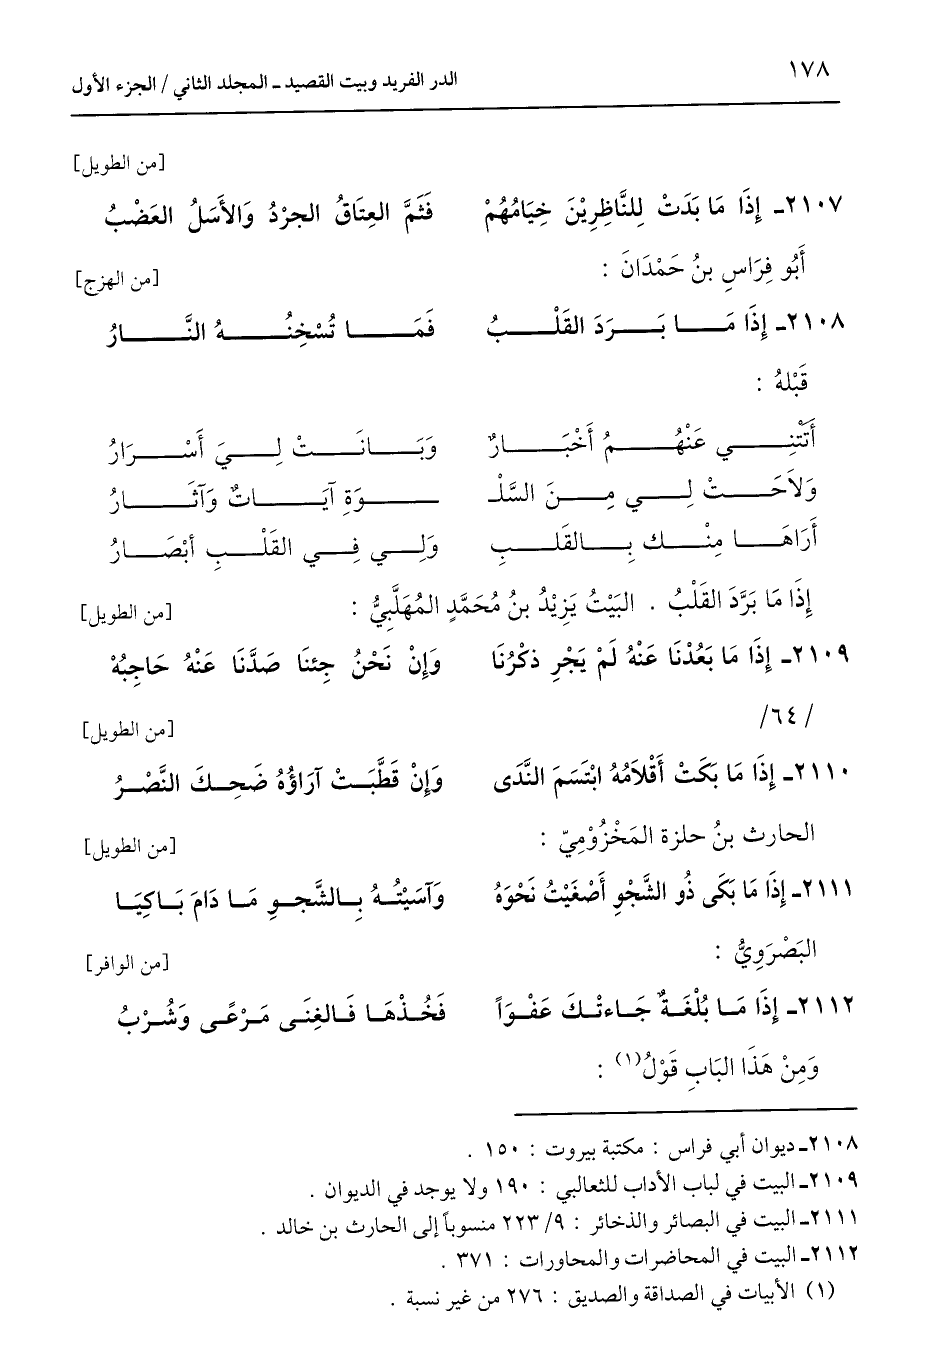 ١٧٨
الدر الفريد وبيت القصيد ـ المجلد الثاني / الجزء الأول
[من الطويل]
٢١٠٧ـ إِذَا مَا بَدَتْ لِلنَّاظِرِيْنَ خِيَامُهُمْ فَثَمَّ العِتَاقُ الجرْدُ وَالأَسَلُ العَضْبُ
أَبُو فِرَاسِ بنُ حَمْدَانَ : [من الهزج]
٢١٠٨ـ إِذَا مَا بَرَدَ القَلْبُ فَمَا تُسْخِنُهُ النَّارُ
قَبْلهُ :
أَتَتْنِي عَنْهُمُ أَخْبَارٌ وَبَانَتْ لِيَ أَسْرَارُ
وَلاَحَتْ لِي مِنَ السَّلْـ ـوَةِ آيَاتٌ وَآثَارُ
أَرَاهَا مِنْكَ بِالقَلبِ وَلِي فِي القَلْبِ أبْصَارُ
إِذَا مَا بَرَّدَ القَلْبُ . البَيْتُ يَزِيْدُ بنُ مُحَمَّدٍ المُهَلَّبِيُّ : [من الطويل]
٢١٠٩ـ إِذَا مَا بَعُدْنَا عَنْهُ لَمْ يَجْرِ ذكْرُنَا وَإِنْ نَحْنُ جِئنَا صَدَّنَا عَنْهُ حَاجِبُهْ
/ ٦٤/ [من الطويل]
٢١١٠ـ إِذَا مَا بَكَتْ أَقْلاَمُهُ ابْتَسَمَ النَّدَى وَإِنْ قَطَّبَتْ آرَاؤُهُ ضَحِكَ النَّصْرُ
الحارث بنُ حلزة المَخْزُوْمِيّ : [من الطويل]
٢١١١ـ إِذَا مَا بَكَى ذُو الشَّجْوِ أَصْغَيْتُ نَحْوَهُ وَآسَيْتُهُ بِالشَّجوِ مَا دَامَ بَاكِيَا
البَصْرَوِيُّ : [من الوافر]
٢١١٢ـ إِذَا مَا بُلْغَةٌ جَاءتْكَ عَفْوَاً فَخُذْهَا فَالغِنَى مَرْعًى وَشُرْبُ
وَمِنْ هَذَا البَابِ قَوْلُ(١) :
٢١٠٨ـ ديوان أبي فراس : مكتبة بيروت : ١٥٠ .
٢١٠٩ـ البيت في لباب الأداب للثعالبي : ١٩٠ ولا يوجد في الديوان .
٢١١١ـ البيت في البصائر والذخائر : ٩/ ٢٢٣ منسوباً إلى الحارث بن خالد .
٢١١٢ـ البيت في المحاضرات والمحاورات : ٣٧١ .
(١) الأبيات في الصداقة والصديق : ٢٧٦ من غير نسبة .